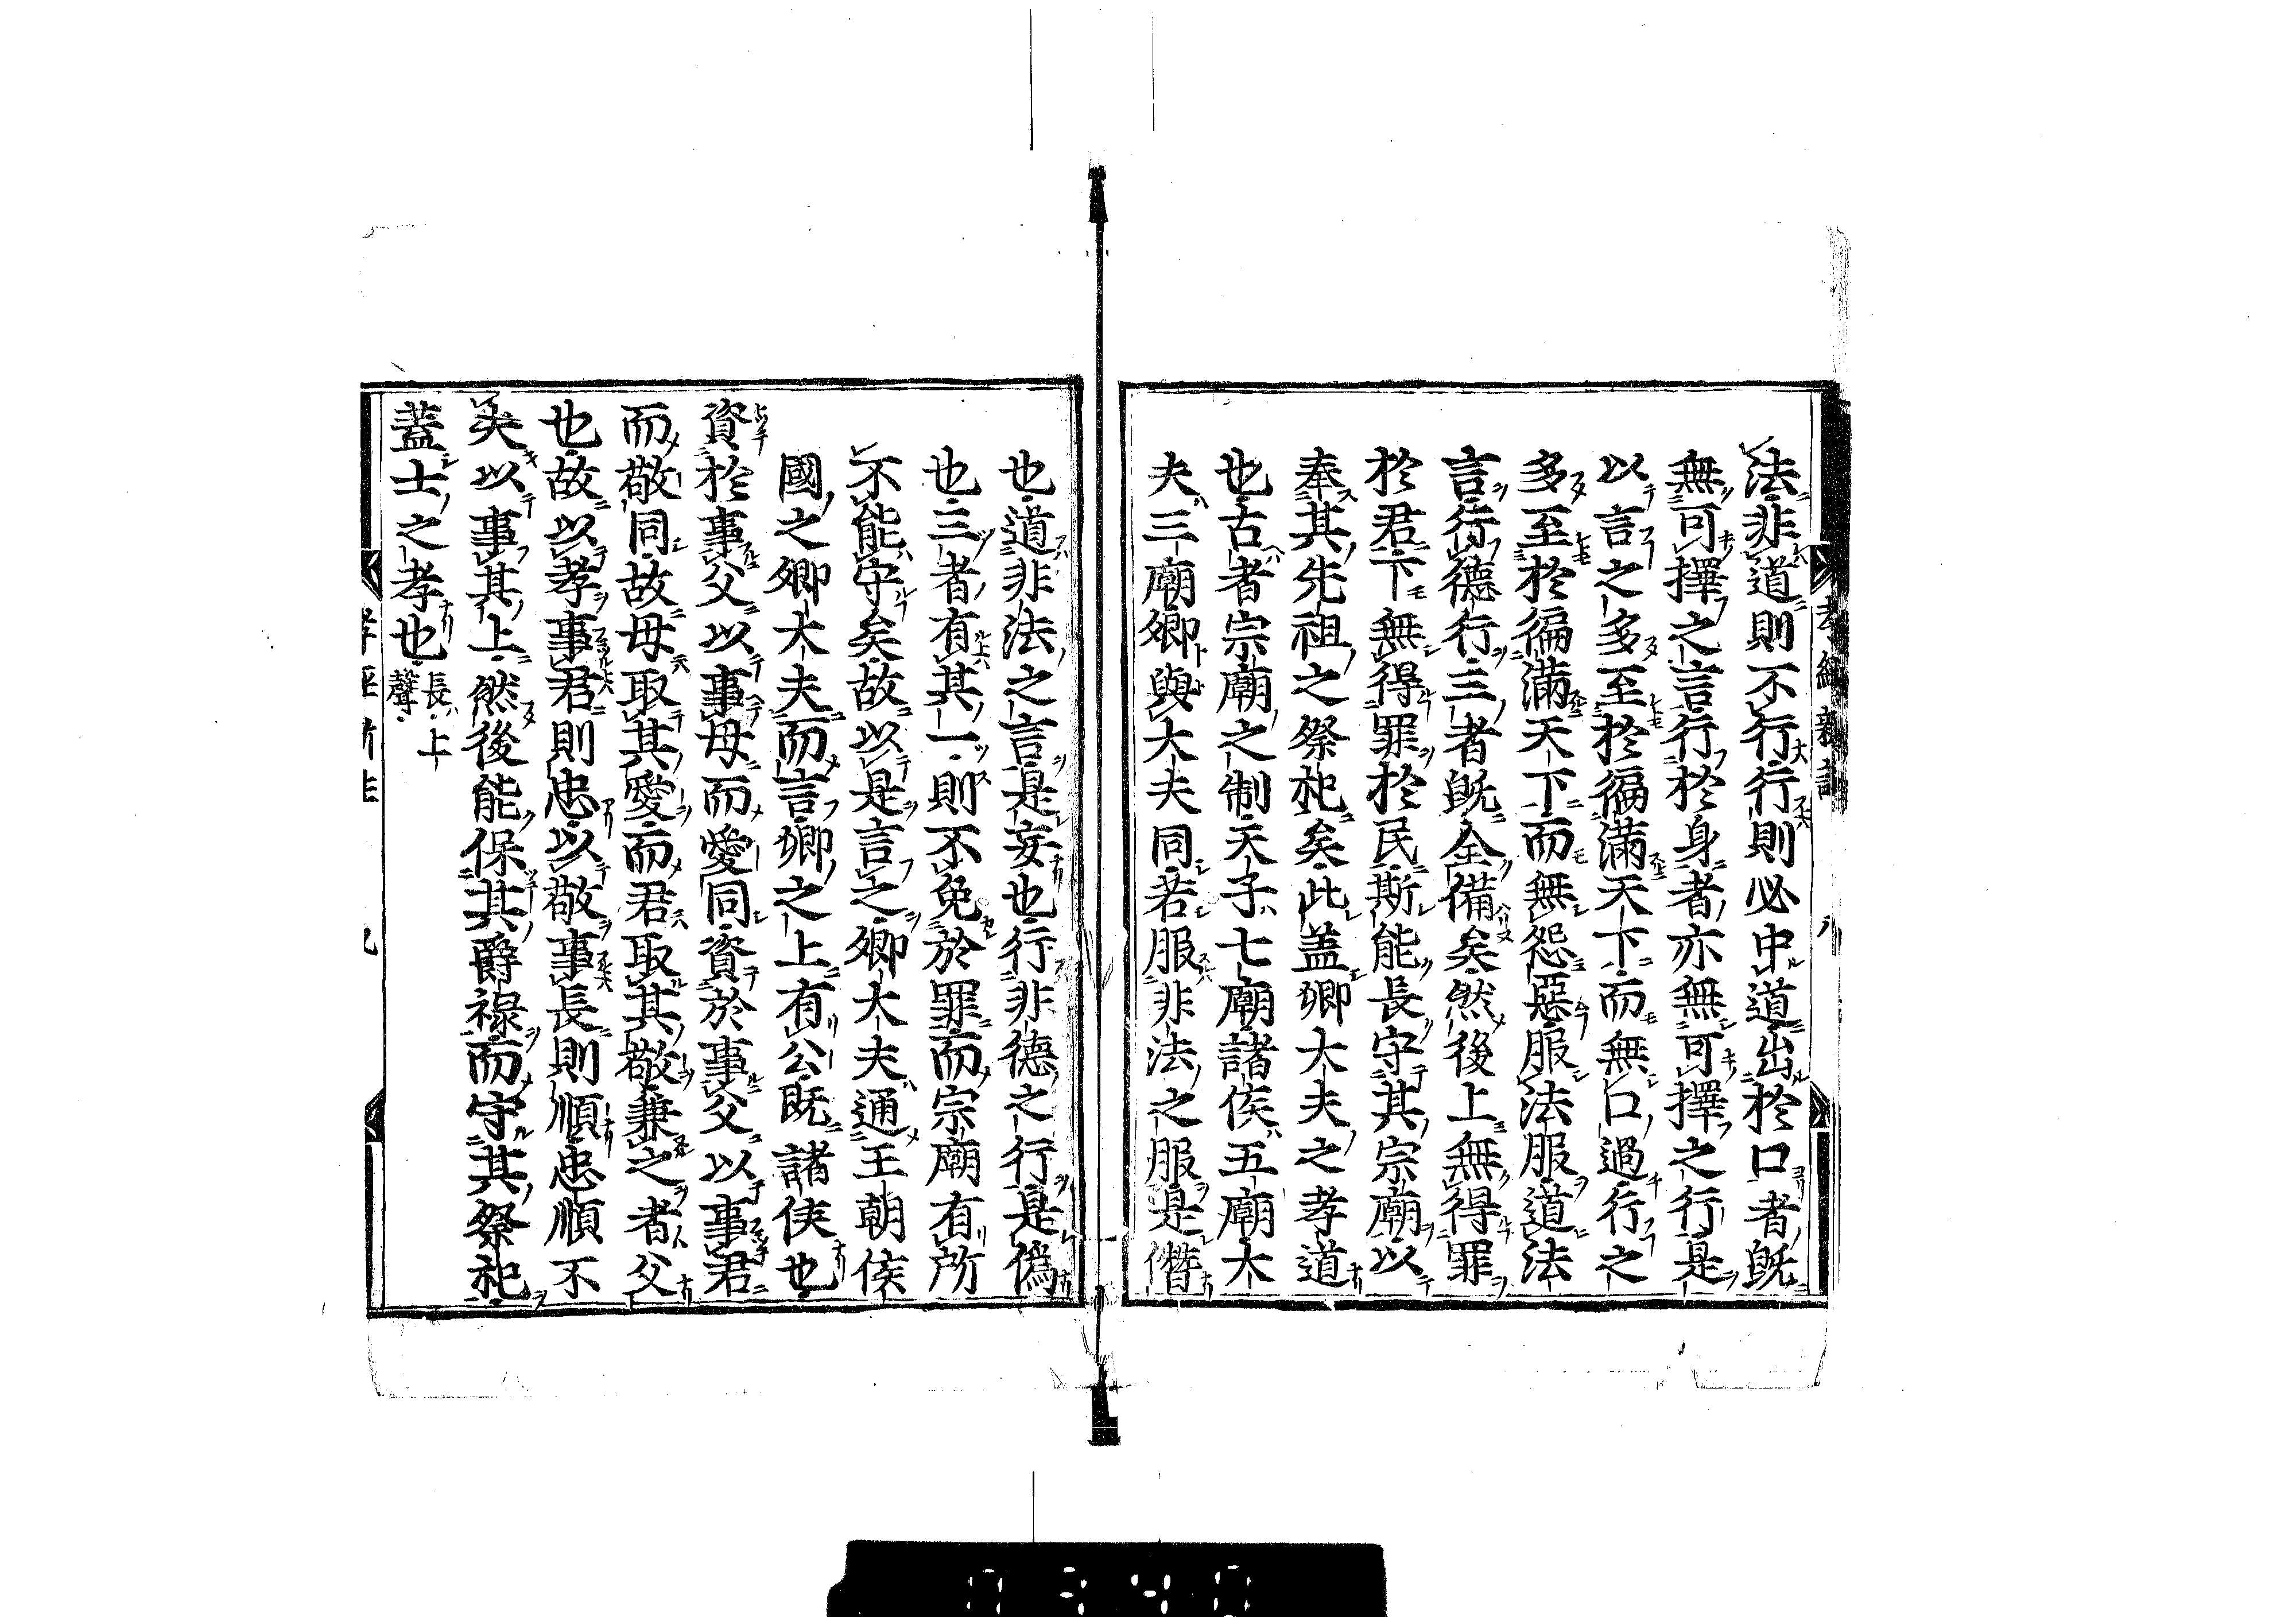 法非道則不行行則必中道出於口者既
無可擇之言行於身者亦無可擇之行是
以言之多至於徧滿天下而無口過行之
多至於徧滿天下而無怨惡服法服道法
言行德行三者既全備矣然後上無得罪
於君下無得罪於民斯能長守其宗廟以
奉其先祖之祭祀矣此盖卿大夫之孝道
也古者宗廟之制天子七廟諸侯五廟大
夫三廟卿與大夫同若服非法之服是僭
也道非法之言是妄也行非德之行是偽
也三者有其一則不免於罪而宗廟有所
不能守矣故以是言之卿大夫通王朝侯
國之卿大夫而言卿之上有公既諸侯也
資於事父以事母而愛同資於事父以事君
而敬同故母取其愛而君取其敬兼之者父
也故以孝事君則忠以敬事長則順忠順不
失以事其上然後能保其爵祿而守其祭祀
蓋士之孝也長上
聲